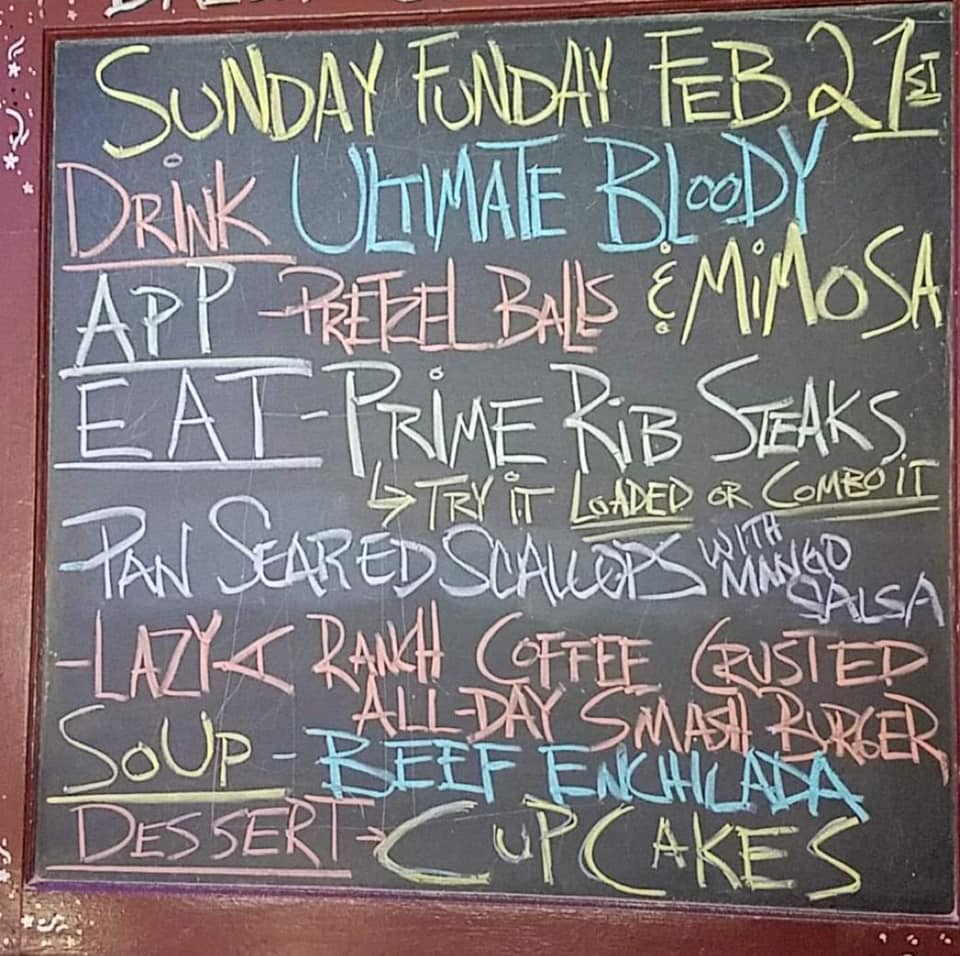 SUNDAY FUNDAY FEB 21ST
DRINK ULTIMATE BLOODY
& MIMOSA
APP - PRETZEL BALLS
EAT - PRIME RIB STEAKS
↳ TRY IT LOADED OR COMBO IT
- PAN SEARED SCALLOPS WITH MANGO SALSA
- LAZY < RANCH COFFEE CRUSTED
ALL-DAY SMASH BURGER
SOUP - BEEF ENCHILADA
DESSERT → CUPCAKES